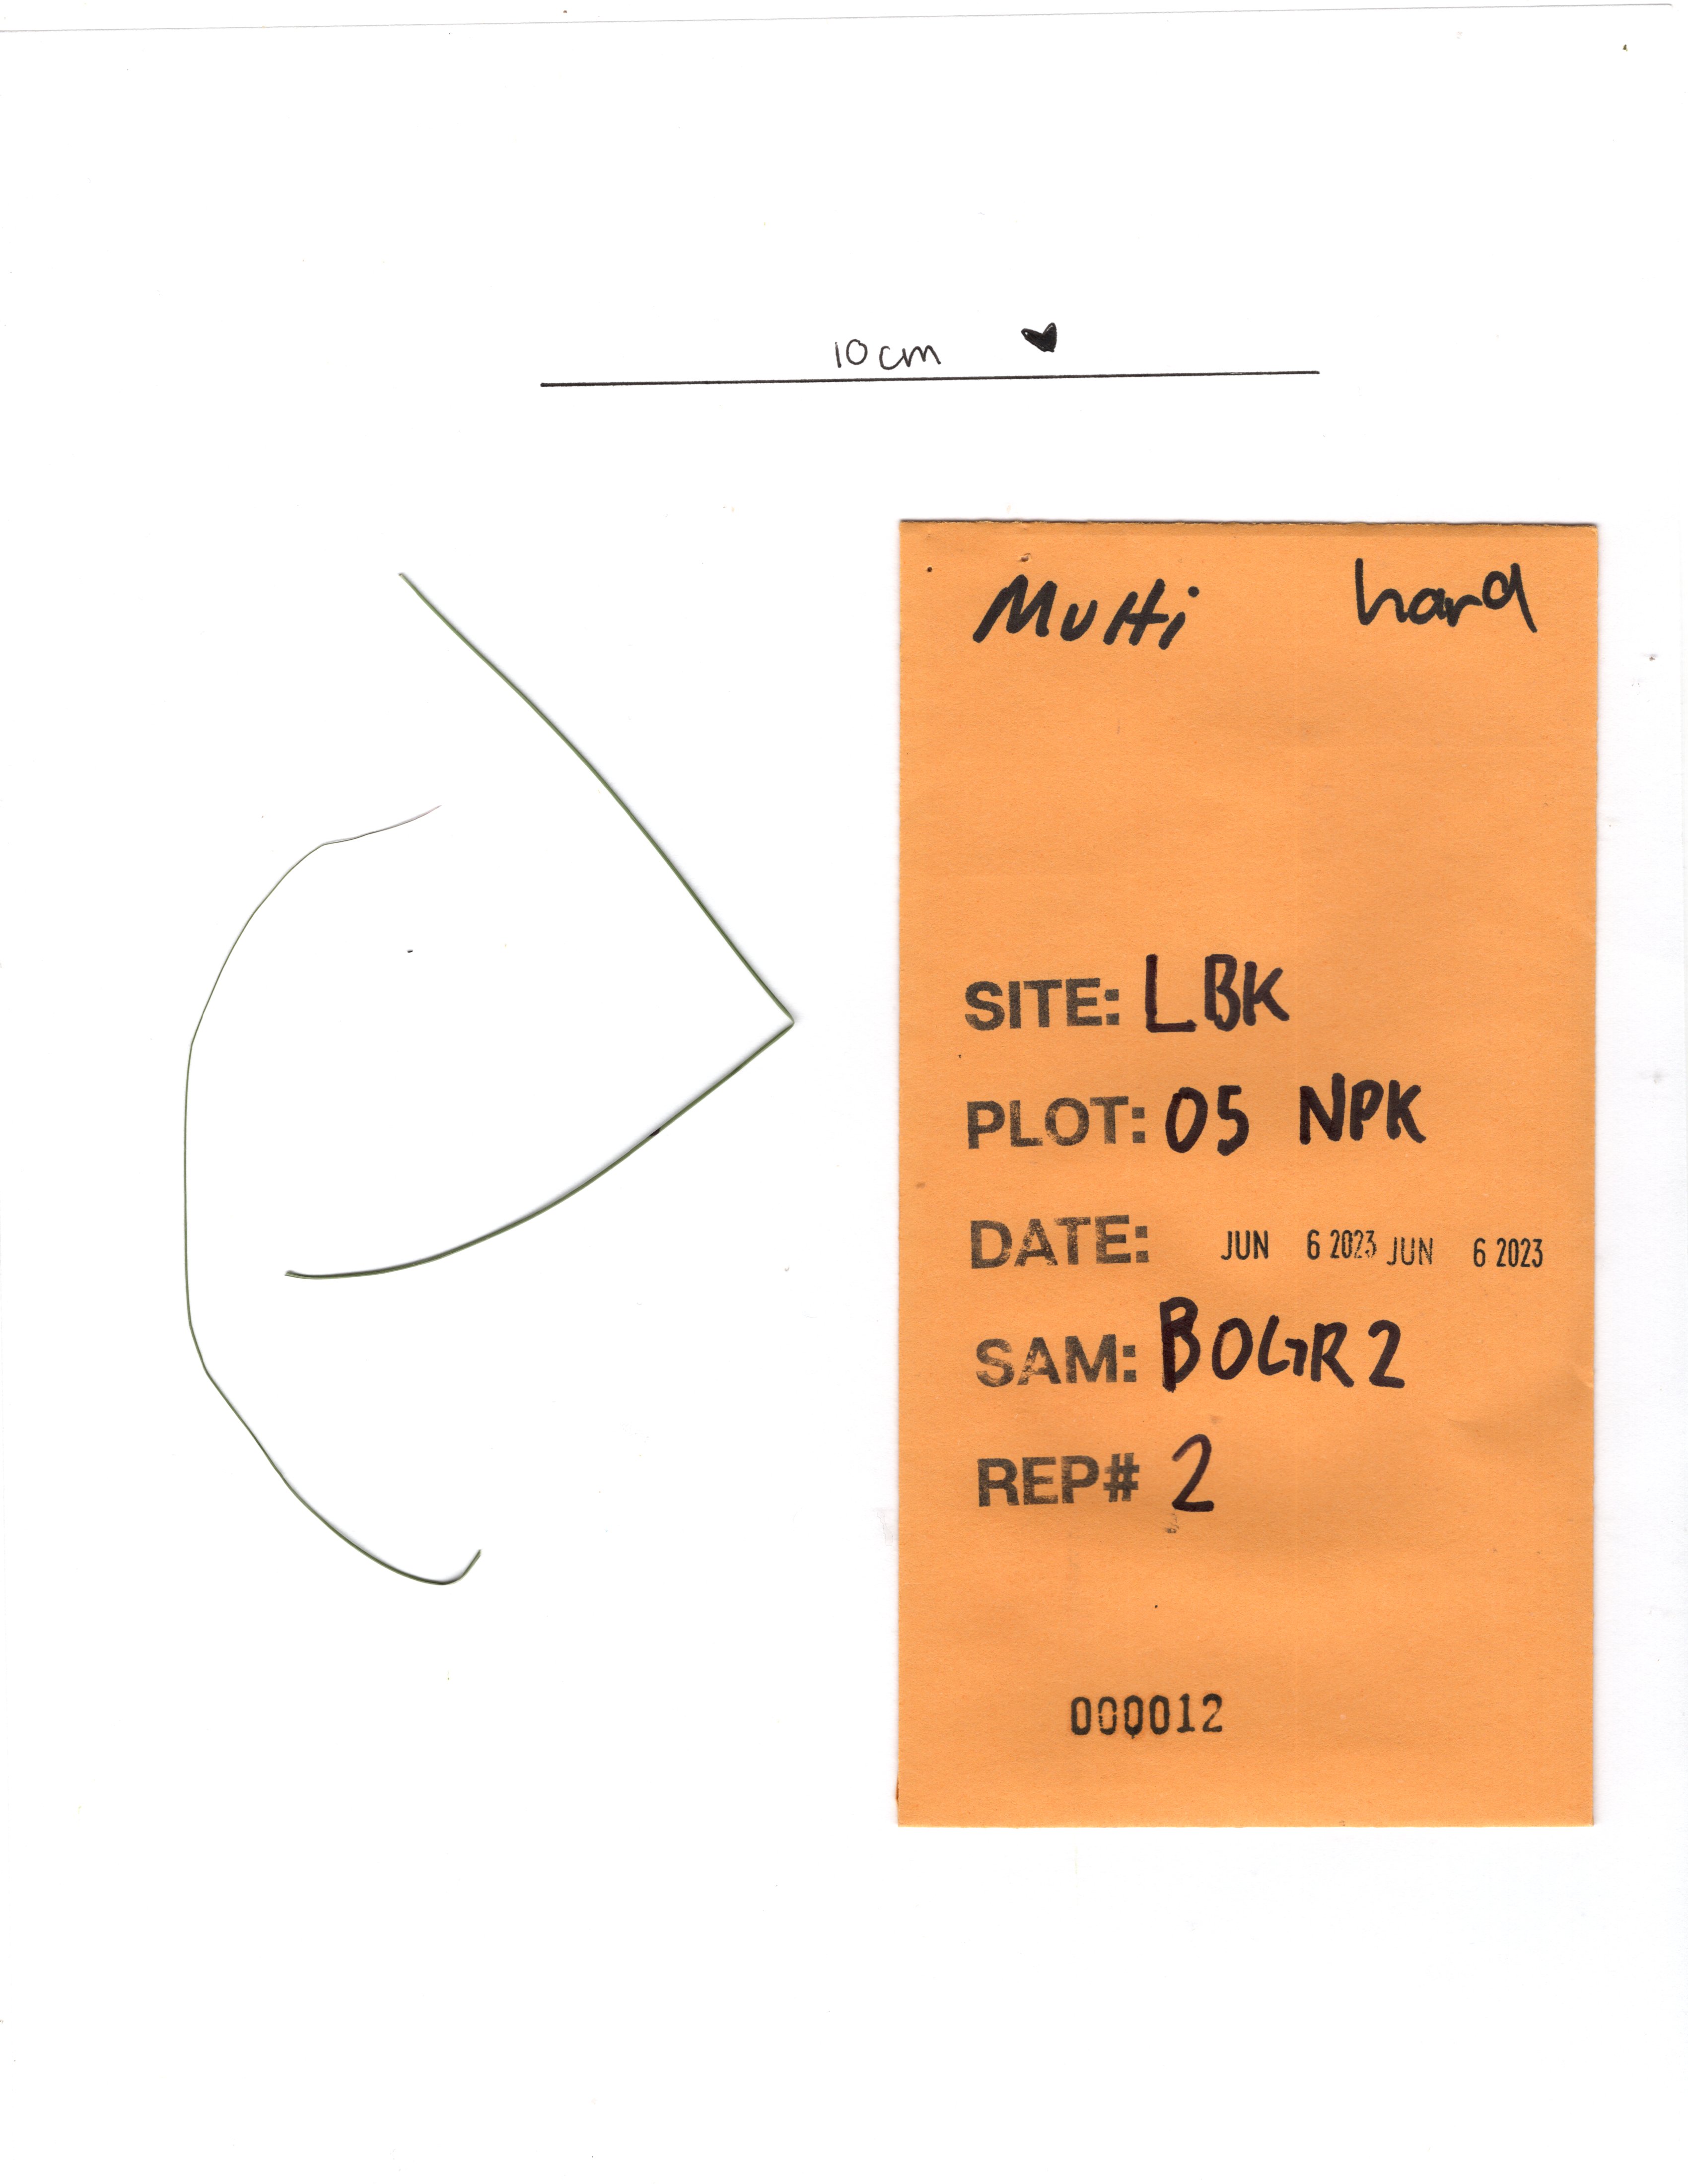 10cm
Multi hard
SITE: LBK
PLOT: 05 NPK
DATE: JUN 6 2023 JUN 6 2023
SAM: BOGR2
REP# 2
000012